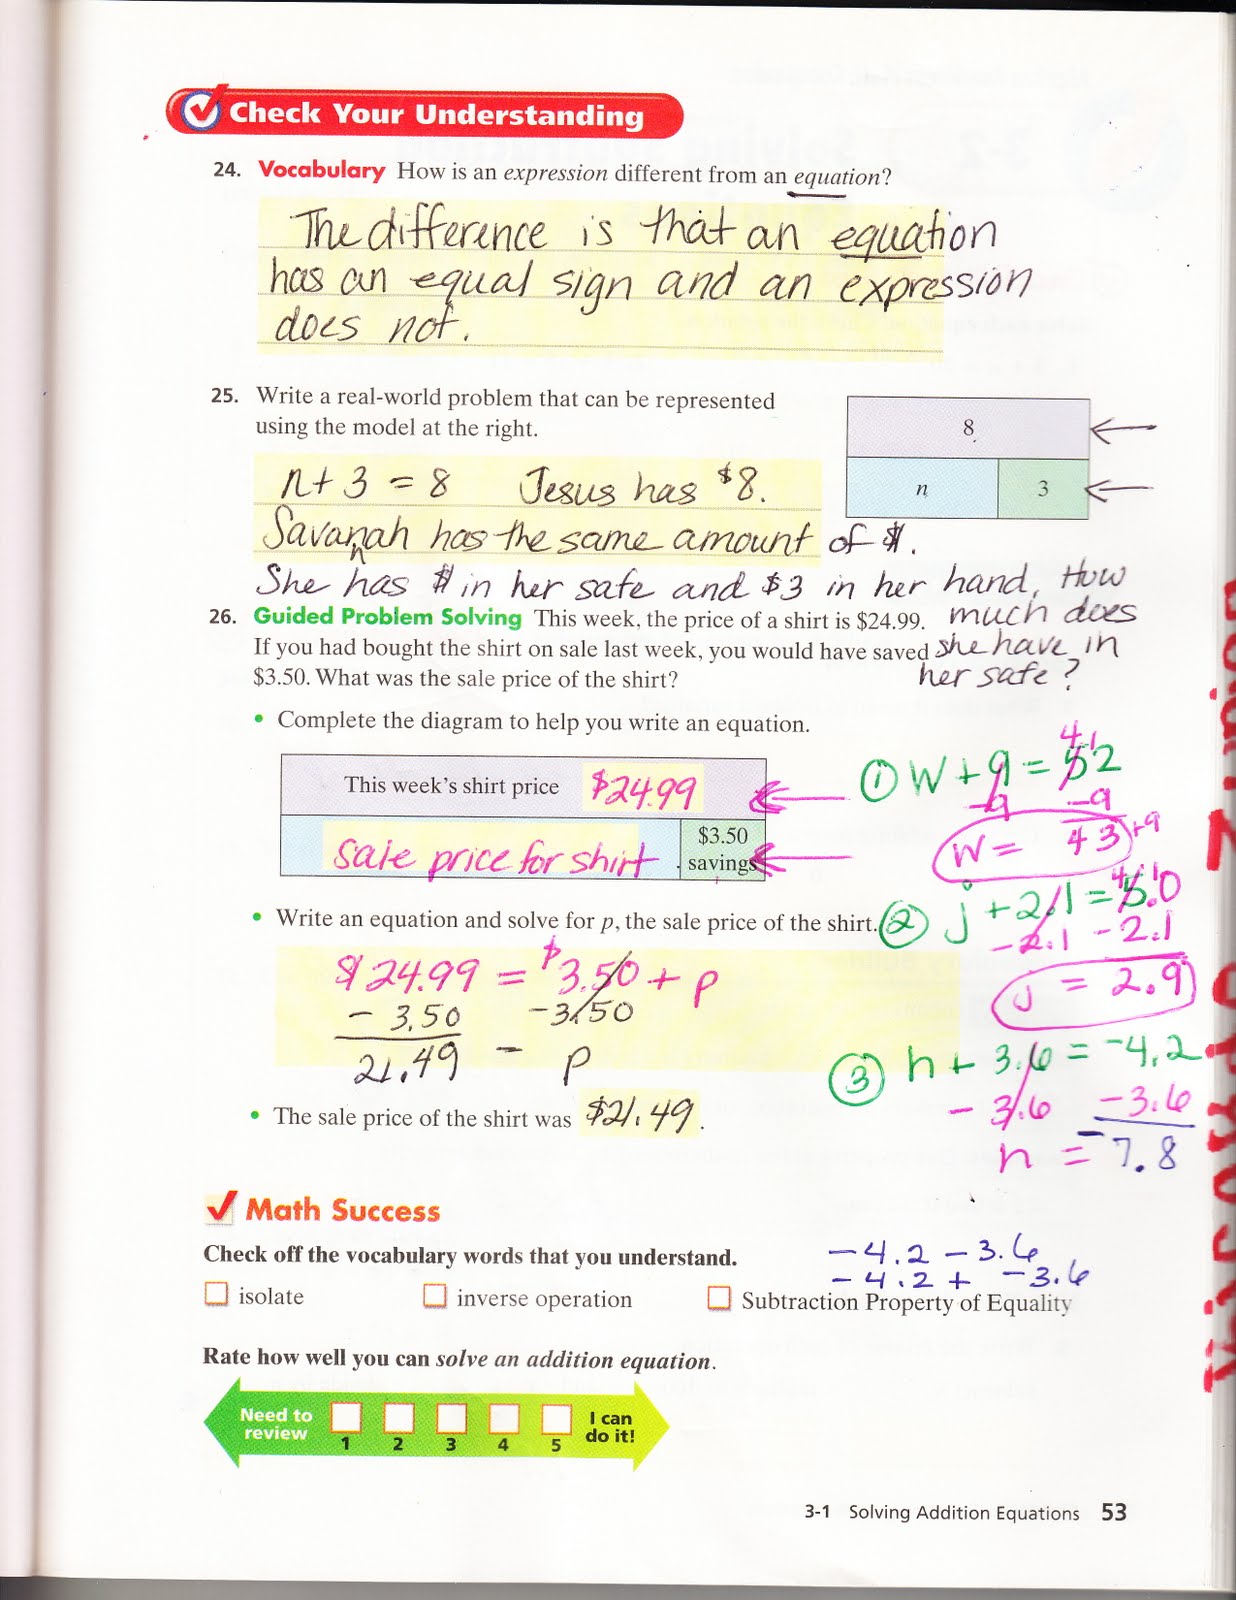 Check Your Understanding
24. Vocabulary How is an expression different from an equation?
The difference is that an equation
has an equal sign and an expression
does not.
25. Write a real-world problem that can be represented
using the model at the right.
8
n 3
n + 3 = 8 Jesus has $8.
Savanah has the same amount of $.
n
She has $ in her safe and $3 in her hand. How
much does
she have in
her safe?
26. Guided Problem Solving This week, the price of a shirt is $24.99.
If you had bought the shirt on sale last week, you would have saved
$3.50. What was the sale price of the shirt?
• Complete the diagram to help you write an equation.
This week's shirt price $24.99
Sale price for shirt $3.50
savings
• Write an equation and solve for p, the sale price of the shirt.
$24.99 = $3.50 + p
- 3.50 -3.50
21.49 = p
• The sale price of the shirt was $21.49.
4 1
① W + 9 = 52
-9 -9
W = 43 +9
4 1
② j + 2.1 = 5.0
-2.1 -2.1
j = 2.9
③ n + 3.6 = -4.2
- 3.6 -3.6
n = -7.8
Math Success
Check off the vocabulary words that you understand.
-4.2 - 3.6
-4.2 + -3.6
isolate inverse operation Subtraction Property of Equality
Rate how well you can solve an addition equation.
Need to
review
1 2 3 4 5
I can
do it!
3-1 Solving Addition Equations 53